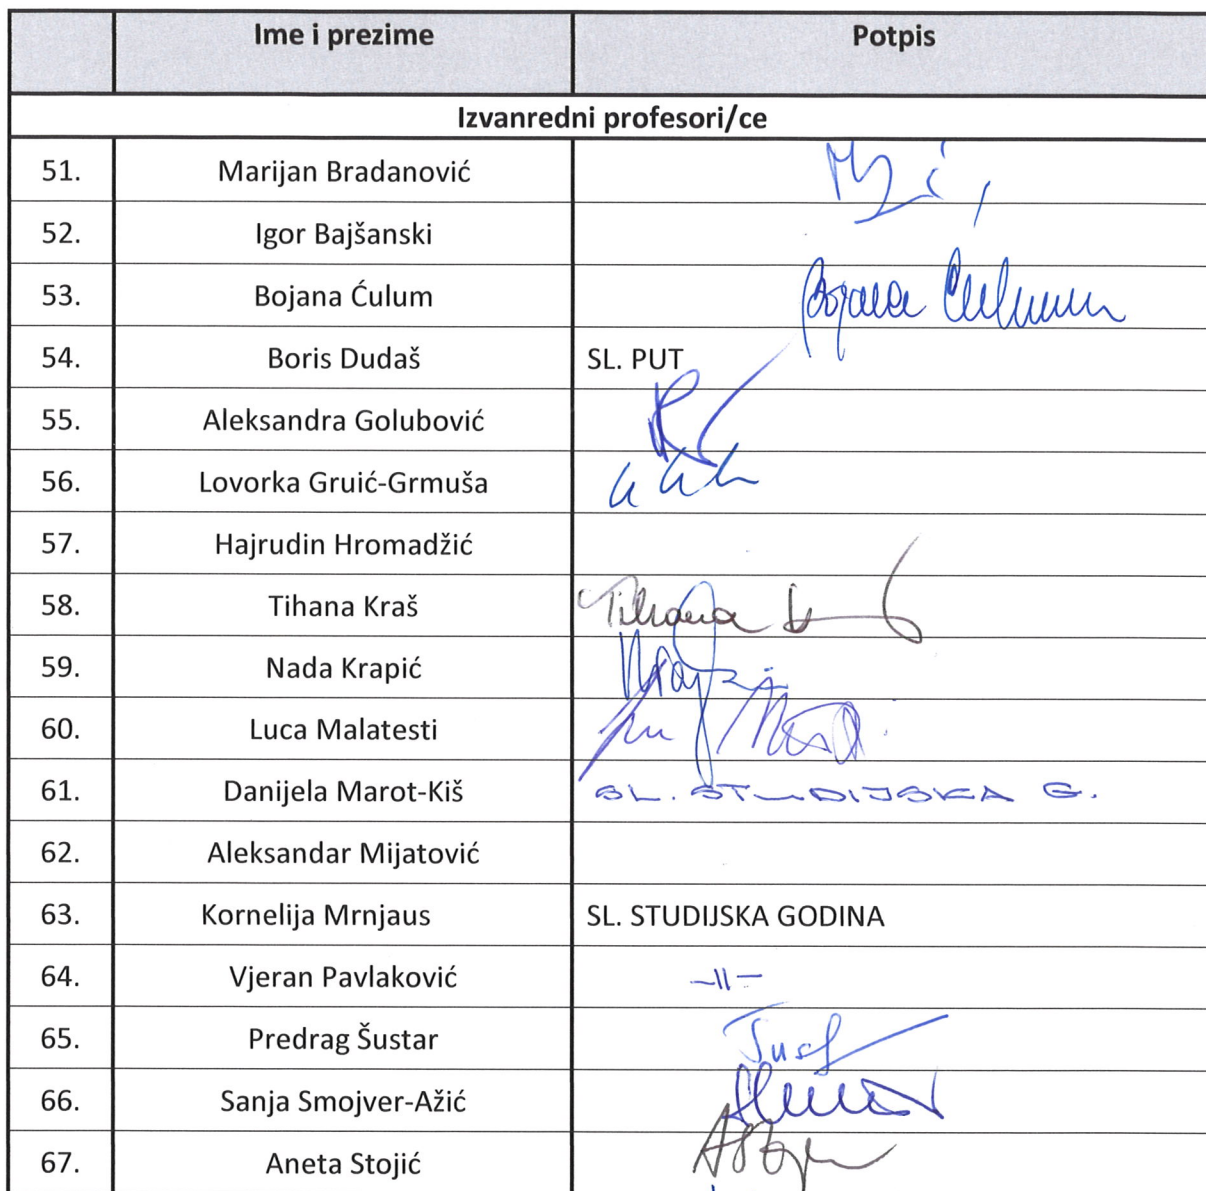 Ime i prezime Potpis
Izvanredni profesori/ce
51. Marijan Bradanović
52. Igor Bajšanski
53. Bojana Ćulum Bojana Ćulum
54. Boris Dudaš SL. PUT
55. Aleksandra Golubović
56. Lovorka Gruić-Grmuša
57. Hajrudin Hromadžić
58. Tihana Kraš Tihana
59. Nada Krapić
60. Luca Malatesti
61. Danijela Marot-Kiš SL. STUDIJSKA G.
62. Aleksandar Mijatović
63. Kornelija Mrnjaus SL. STUDIJSKA GODINA
64. Vjeran Pavlaković –||–
65. Predrag Šustar
66. Sanja Smojver-Ažić
67. Aneta Stojić